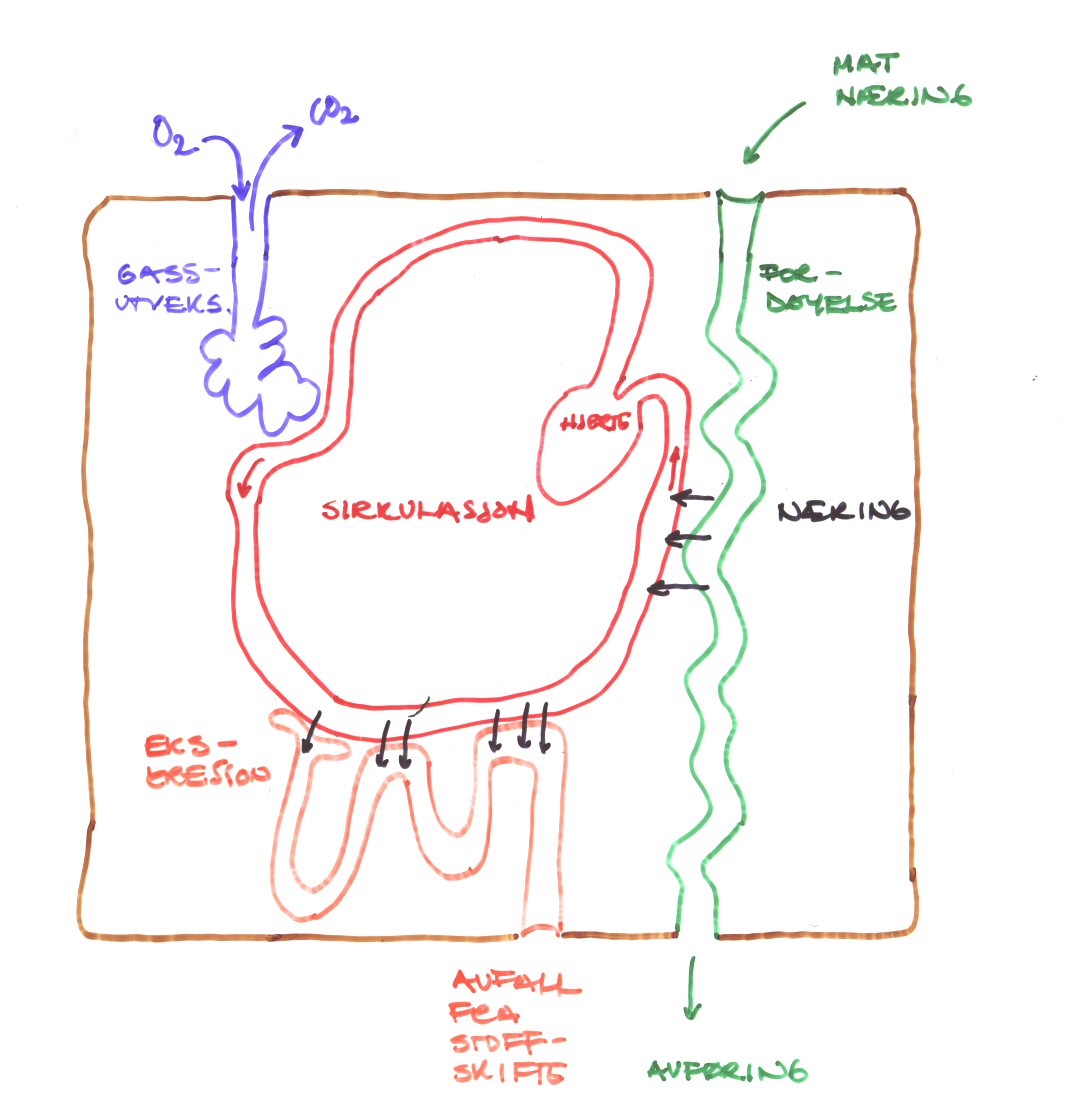 MAT
NÆRING
O2
CO2
GASS-
UTVEKS.
FOR-
DØYELSE
HJERTE
SIRKULASJON
NÆRING
EKS-
KRESJON
AVFALL
FRA
STOFF-
SKIFTE
AVFØRING